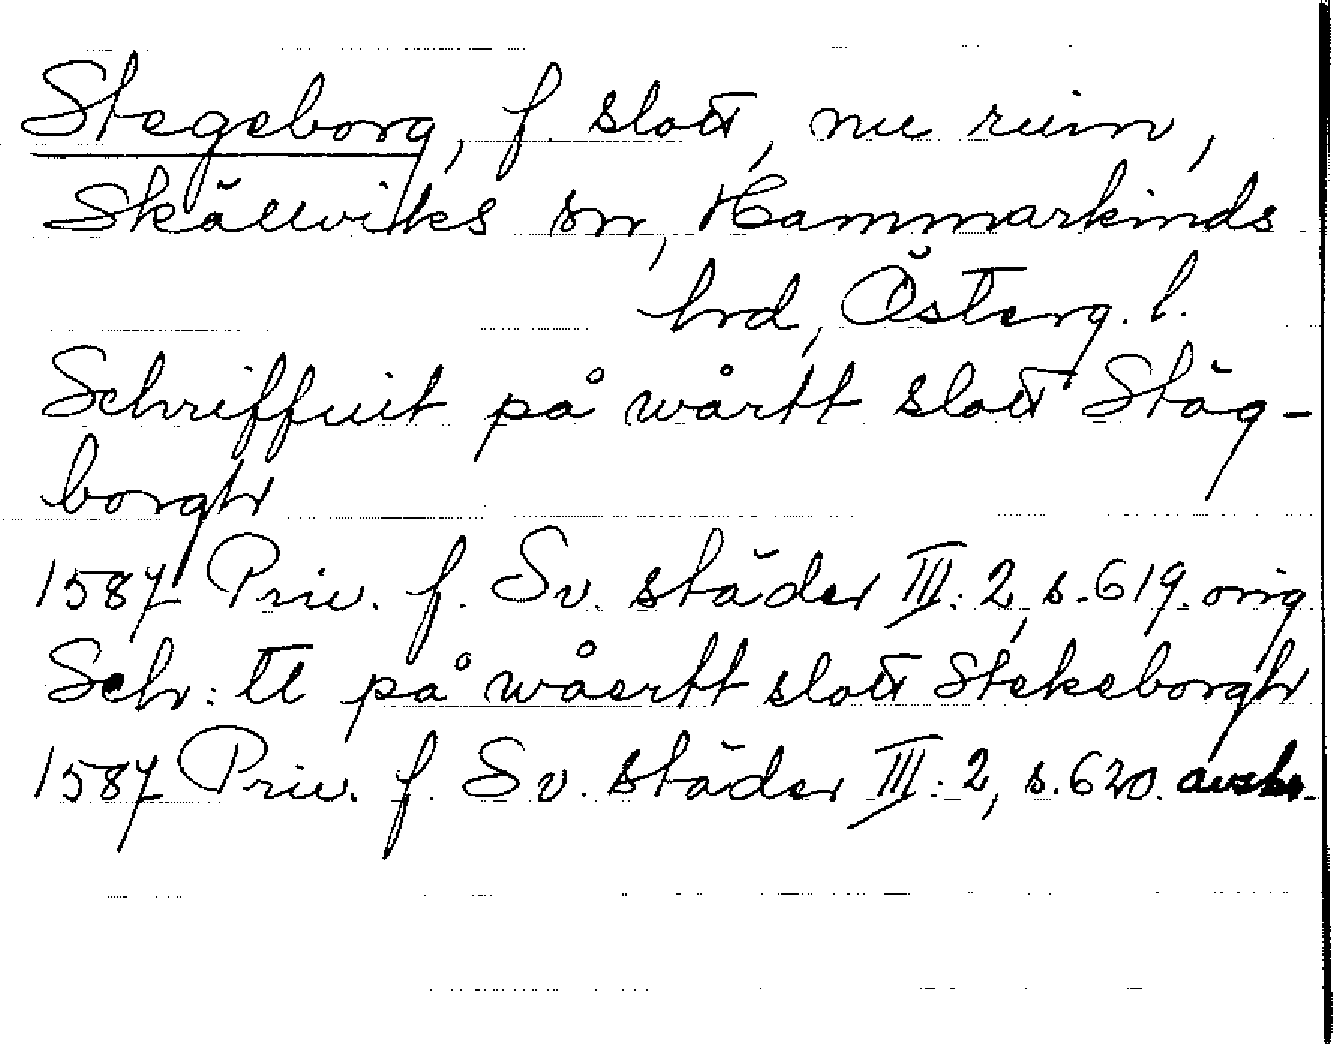 Stegeborg, f. slott, nu ruin,
Skällviks sn, Hammarkinds
hrd, Österg. l.
Schriffuit på wårtt slott Stäg-
borgh
1587 Priv. f. Sv. städer III:2, s. 619. orig
Schr: tt på wåertt slott Stekeborgh
1587 Priv. f. Sv. städer III:2, s. 620. avskr.